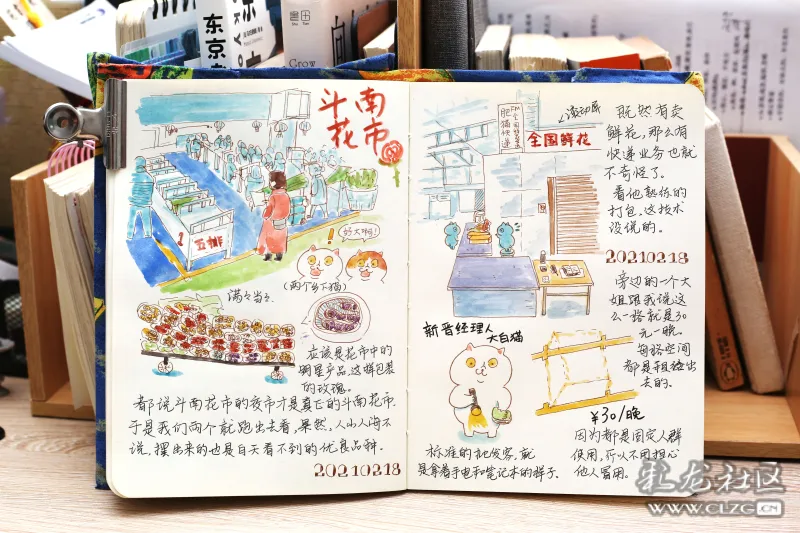 東田
东京
Grow
斗南
花市
好大啊!
!
五排
(两个乡下猫)
满满当当
应该是花市中的
明星产品这样包装
的玫瑰。
都说斗南花市的夜市才是真正的斗南花市
于是我们两个就跑出去看,果然,人山人海不
说,摆出来的也是白天看不到的优良品种.
20210218
肥猫快递
全国鲜花
滚动屏
既然有卖
鲜花,那么有
快递业务也就
不奇怪了。
看他熟练的
打包,这技术
没说的。
20210218
旁边的一个大
姐跟我说这
么一格就是30
元一晚。
每格空间
都是租赁出
去的。
新晋经理人
大白猫
标准的批发客,就
是拿着手电和笔记本的样子.
¥30/晚
因为都是固定人群
使用,所以不用担心
他人冒用。
彩龙社区
WWW.CLZG.CN